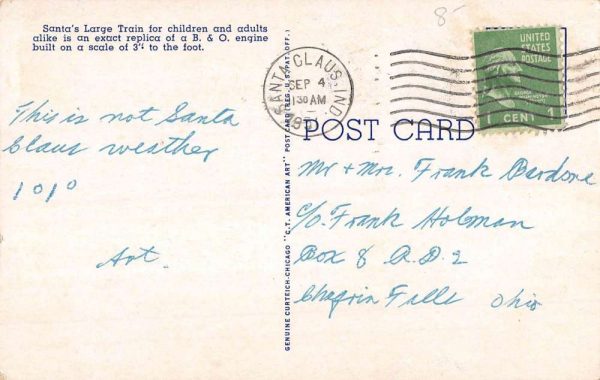 8-
Santa's Large Train for children and adults
alike is an exact replica of a B. & O. engine
built on a scale of 3" to the foot.
SANTA CLAUS, IND.
SEP 4
130 AM
UNITED
STATES
POSTAGE
GEORGE WASHINGTON
1 CENT 1
POST CARD
This is not Santa
Claus weather
101°
Art.
GENUINE CURTEICH-CHICAGO "C.T. AMERICAN ART" POST CARD (REG. U.S. PAT. OFF.)
Mr + Mrs. Frank Bardone
c/o Frank Holman
Box 8 R.D. 2
Chagrin Falls Ohio